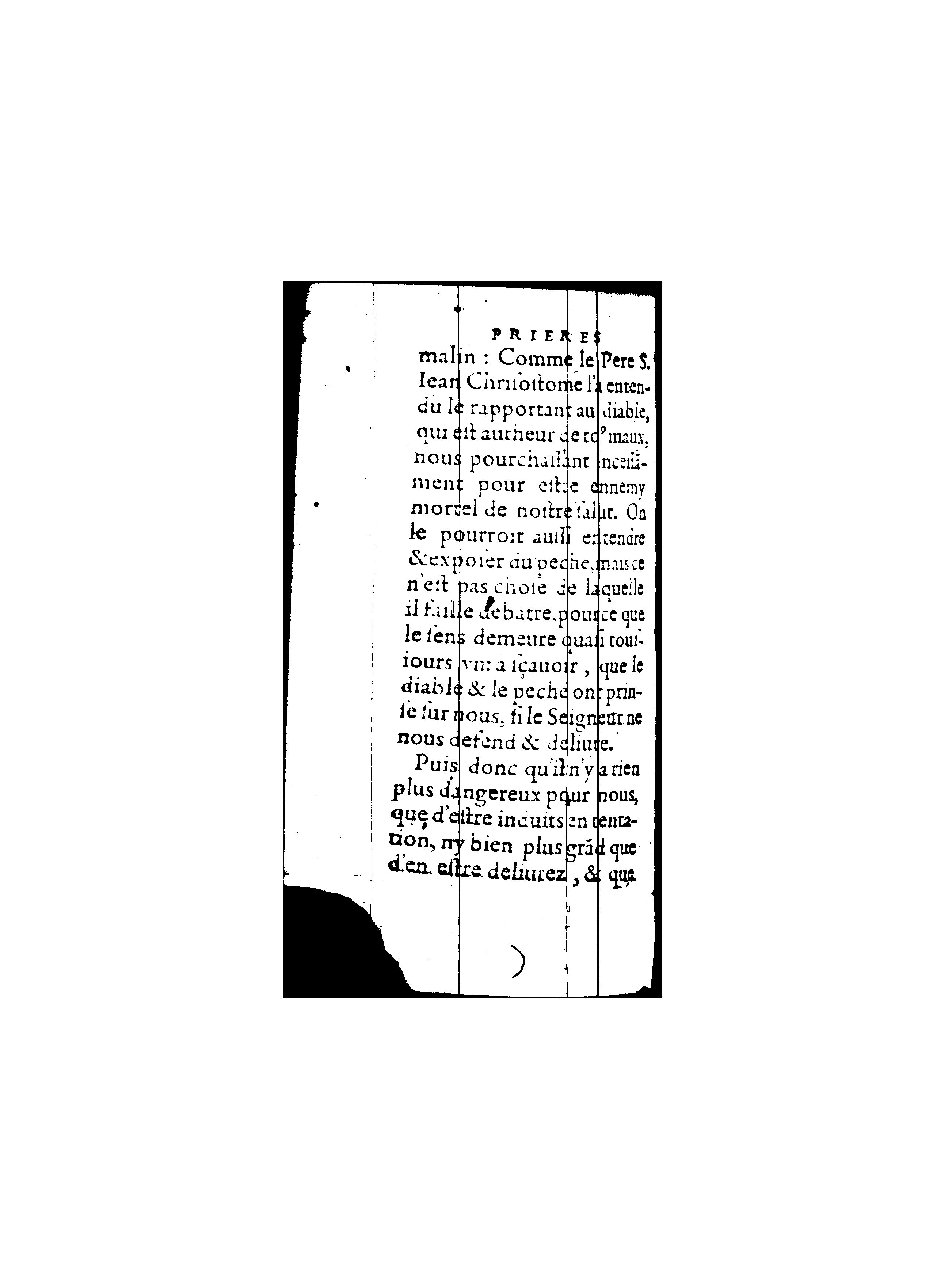 PRIERES
malin : Comme le Pere S.
Iean Chriſoſtome l'a enten-
du le rapportant au diable,
qui eſt autheur de to⁹ maux,
nous pourchaſſant inceſſã-
ment pour eſtre ennemy
mortel de noſtre ſalut. On
le pourroit auſſi entendre
& expoſer du peché, mais ce
n'eſt pas choſe de laquelle
il faille debatre, pource que
le ſens demeure quaſi touſ-
iours vn: a ſçauoir, que le
diable & le peché ont prin-
ſe ſur nous, ſi le Seigneur ne
nous defend & deliure.
Puis donc qu'il n'y a rien
plus dangereux pour nous,
que d'eſtre induits en tenta-
tion, ny bien plus grãd que
d'en eſtre deliurez, & que